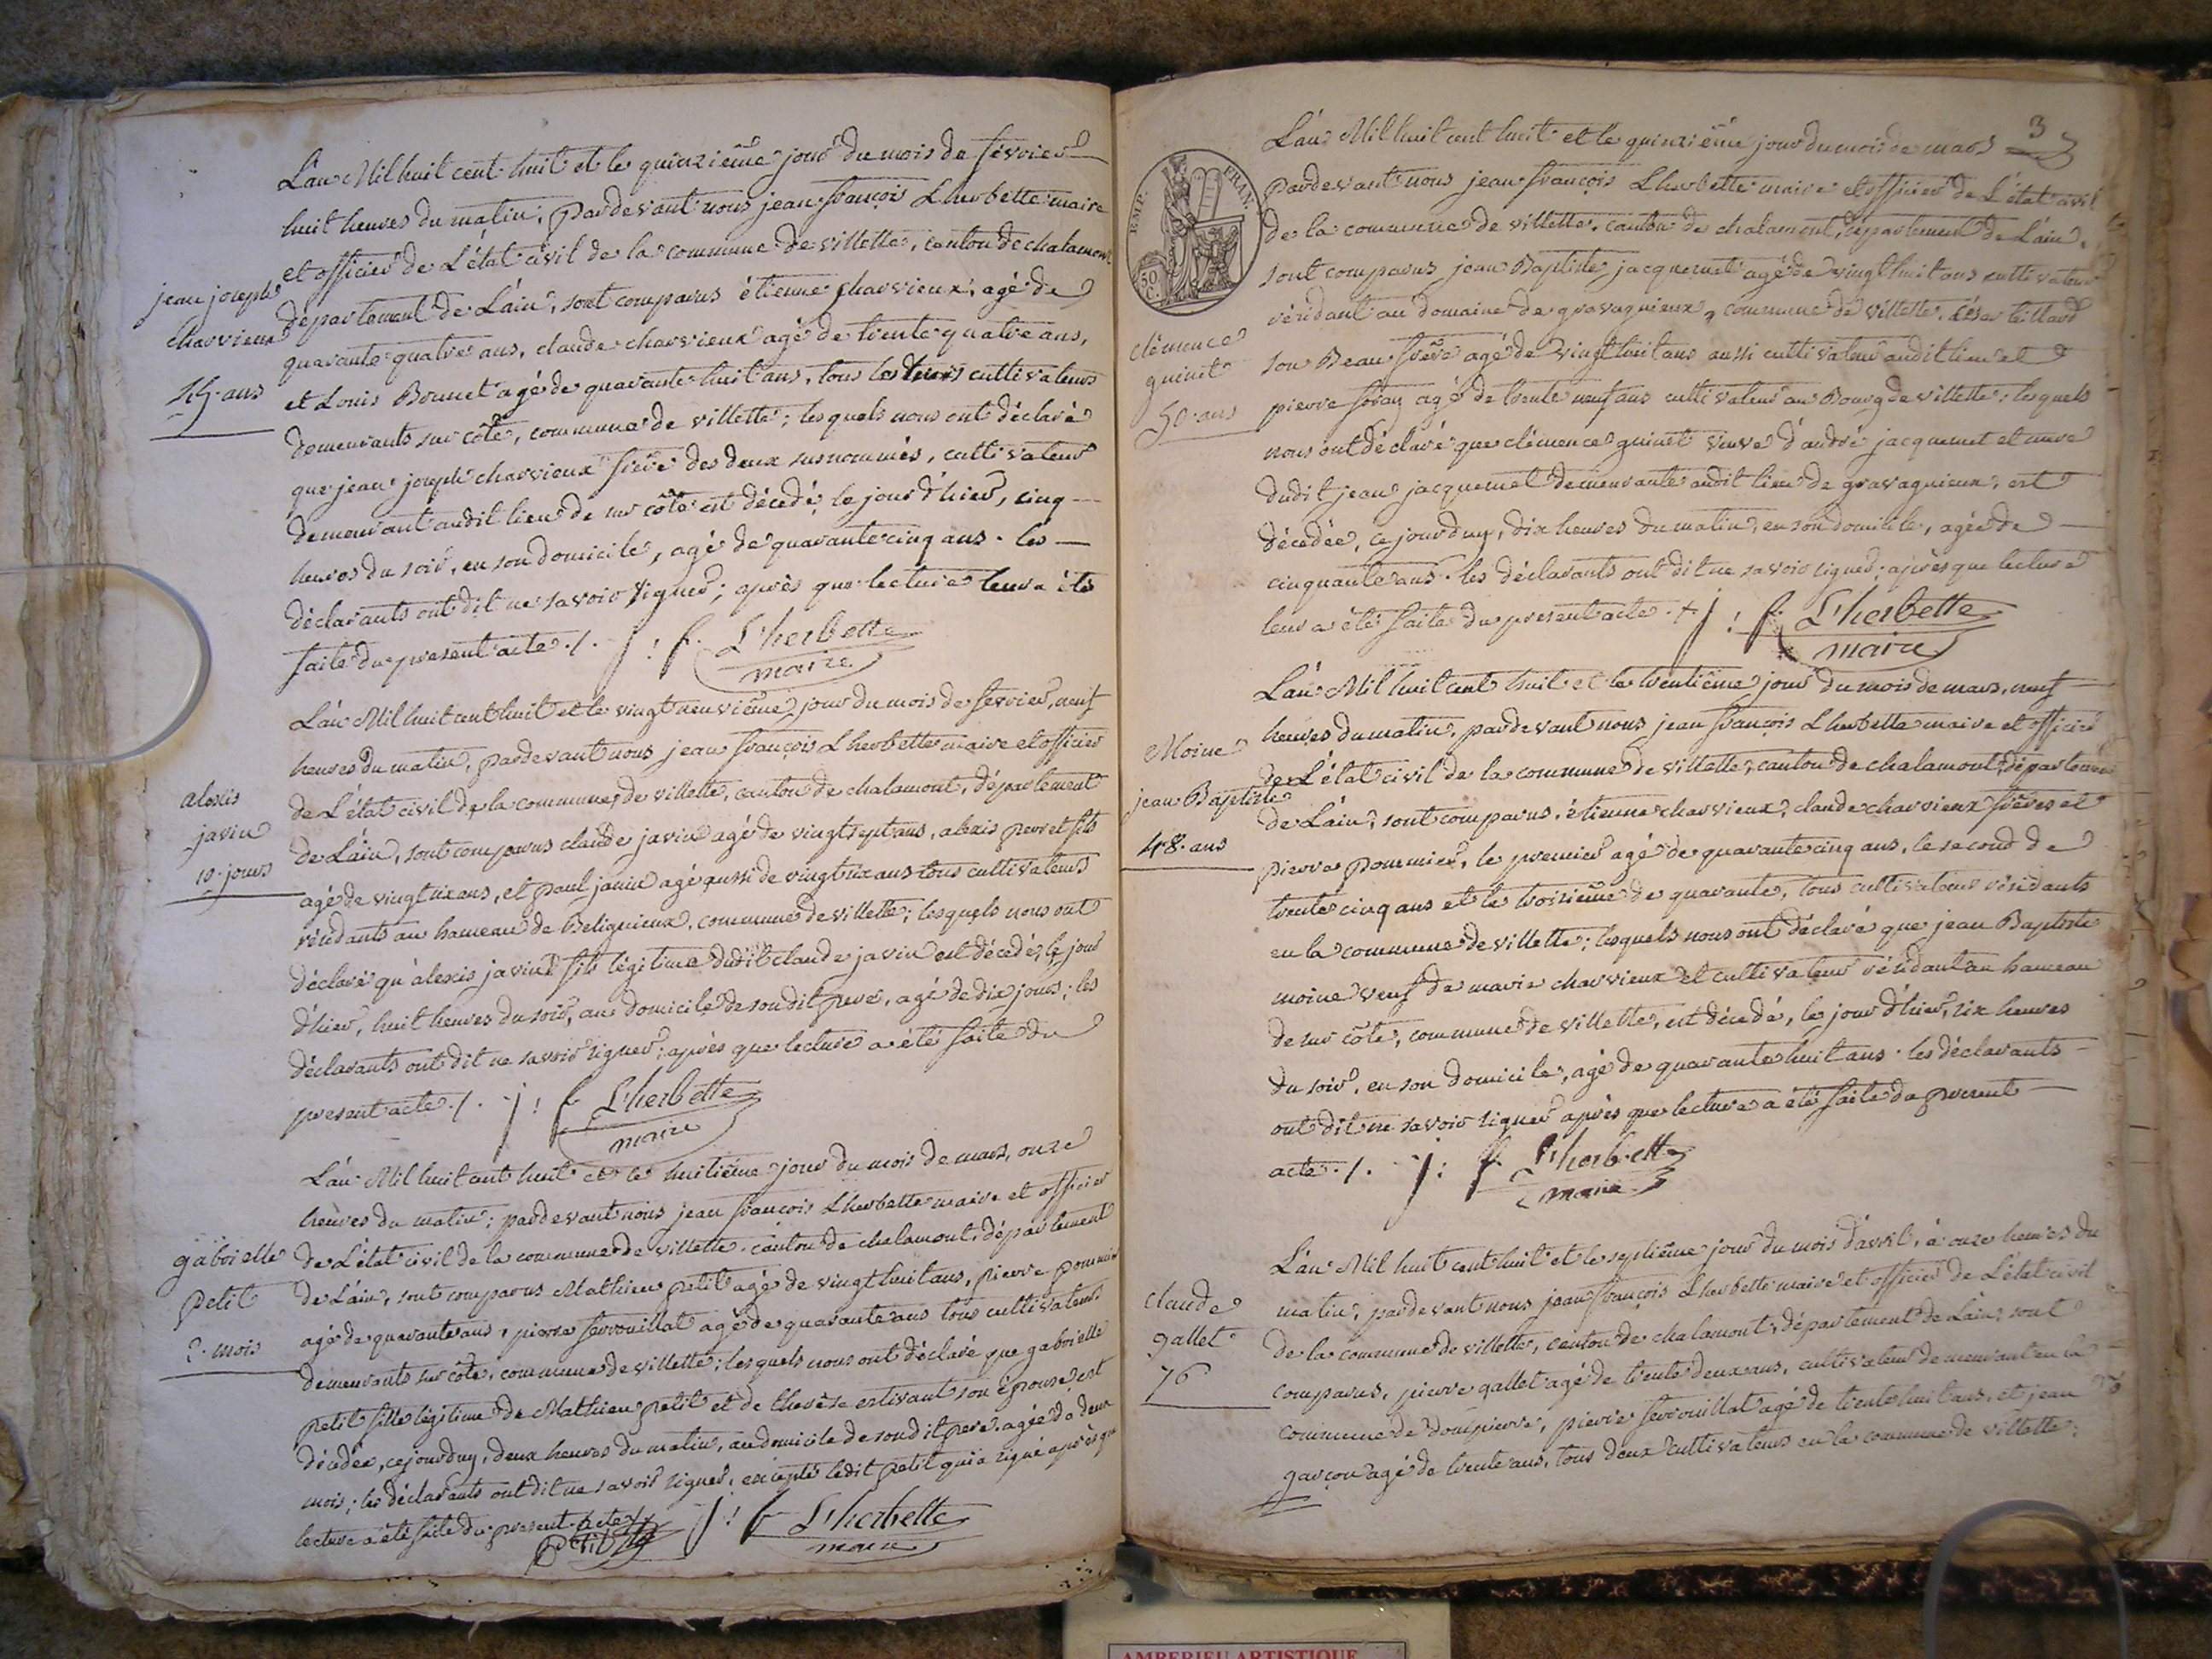 jean joseph
charvieux
45. ans
L'an Mil huit cent huit et le quinzième jour du mois de février
huit heures du matin, pardevant nous jean françois Lherbette maire
et officier de L'état civil de la commune de villette, canton de chalamont
département de L'ain, sont comparus étienne charvieux, agé de
quarante quatre ans, claude charvieux agé de trente quatre ans,
et Louis Bonnet agé de quarante huit ans, tous les trois cultivateurs
demeurants sur côte, commune de villette; lesquels nous ont déclaré
que jean joseph charvieux frère des deux susnommés, cultivateur
demeurant audit lieu de sur côte est décédé, le jour d'hier, cinq
heures du soir, en son domicile, agé de quarante cinq ans. les
déclarants ont dit ne savoir signer; après que lecture leur a été
faite du present acte ./. j: f. L'herbette
maire
alexis
javin
10. jours
L'an Mil huit cent huit et le vingt neuvième jour du mois de fevrier, neuf
heures du matin, pardevant nous jean françois Lherbette maire et officier
de L'état civil de la commune de villette, canton de chalamont, département
de L'ain, sont comparus claude javin agé de vingt sept ans, alexis perret fils
agé de vingt six ans, et paul janin agé aussi de vingt six ans tous cultivateurs
résidants au hameau de Beligneux, commune de villette; lesquels nous ont
déclaré qu'alexis javin fils légitime dudit claude javin est décédé, le jour
d'hier, huit heures du soir, au domicile de son dit pere, agé de dix jours; les
déclarants ont dit ne savoir signer; après que lecture a été faite du
present acte ./. j: f. L'herbette
maire
gabrielle
petit
2. mois
L'an Mil huit cent huit et le huitième jour du mois de mars, onze
heures du matin; pardevant nous jean françois Lherbette maire et officier
de L'état civil de la commune de villette, canton de chalamont, département
de L'ain, sont comparus Mathieu petit agé de vingt huit ans, pierre pommier
agé de quarante ans, pierre ferrouillat agé de quarante ans tous cultivateurs
demeurants sur côte, commune de villette; lesquels nous ont déclaré que gabrielle
petit fille légitime de Mathieu petit et de therèse estivant son épouse, est
décédée, cejourduy, deux heures du matin, au domicile de son dit pere, agée de deux
mois; les déclarants ont dit ne savoir signer, excepté ledit petit qui a signé après que
lecture a été faite du present acte ./. j: f. L'herbette
Petit maire
3
EMP. FRAN.
50 C.
clémence
guinet
50. ans
L'an Mil huit cent huit et le quinzième jour du mois de mars
pardevant nous jean françois Lherbette maire et officier de L'état civil
de la commune de villette, canton de chalamont, département de L'ain,
sont comparus jean Baptiste jacquemet agé de vingt huit ans cultivateur
résidant au domaine de gravagnieux, commune de villette, César teillard
son Beau frère agé de vingt huit ans aussi cultivateur audit lieu et
pierre agé de trente neuf ans cultivateur au Bourg de villette; lesquels
nous ont déclaré que clémence guinet veuve d'andré jacquemet et mere
dudit jean jacquemet demeurante audit lieu de gravagnieux, est
décédée, cejourduy, dix heures du matin, en son domicile, agée de
cinquante ans. les déclarants ont dit ne savoir signer; après que lecture
leur a été faite du present acte. j: f. L'herbette
maire
Moine
jean Baptiste
48. ans
L'an Mil huit cent huit et le trentième jour du mois de mars, neuf
heures du matin, pardevant nous jean françois Lherbette maire et officier
de L'état civil de la commune de villette, canton de chalamont, département
de L'ain, sont comparus, étienne charvieux, claude charvieux frères et
pierre pommier, le premier agé de quarante cinq ans, le second de
trente cinq ans et le troisième de quarante, tous cultivateurs résidants
en la commune de villette; lesquels nous ont déclaré que jean Baptiste
moine veuf de marie charvieux et cultivateur résidant au hameau
de sur côte, commune de villette, est décédé, le jour d'hier, six heures
du soir, en son domicile, agé de quarante huit ans. les déclarants
ont dit ne savoir signer après que lecture a été faite du present
acte ./. j: f. L'herbette
maire
claude
gallet
76
L'an Mil huit cent huit et le septième jour du mois d'avril, à onze heures du
matin, pardevant nous jean françois Lherbette maire et officier de L'état civil
de la commune de villette, canton de chalamont, département de L'ain, sont
comparus, pierre gallet agé de trente deux ans, cultivateur demeurant en la
commune de dompierre, pierre ferrouillat agé de trente huit ans, et jean
garçon agé de trente ans, tous deux cultivateurs en la commune de villette;
AMBERIEU ARTISTIQUE